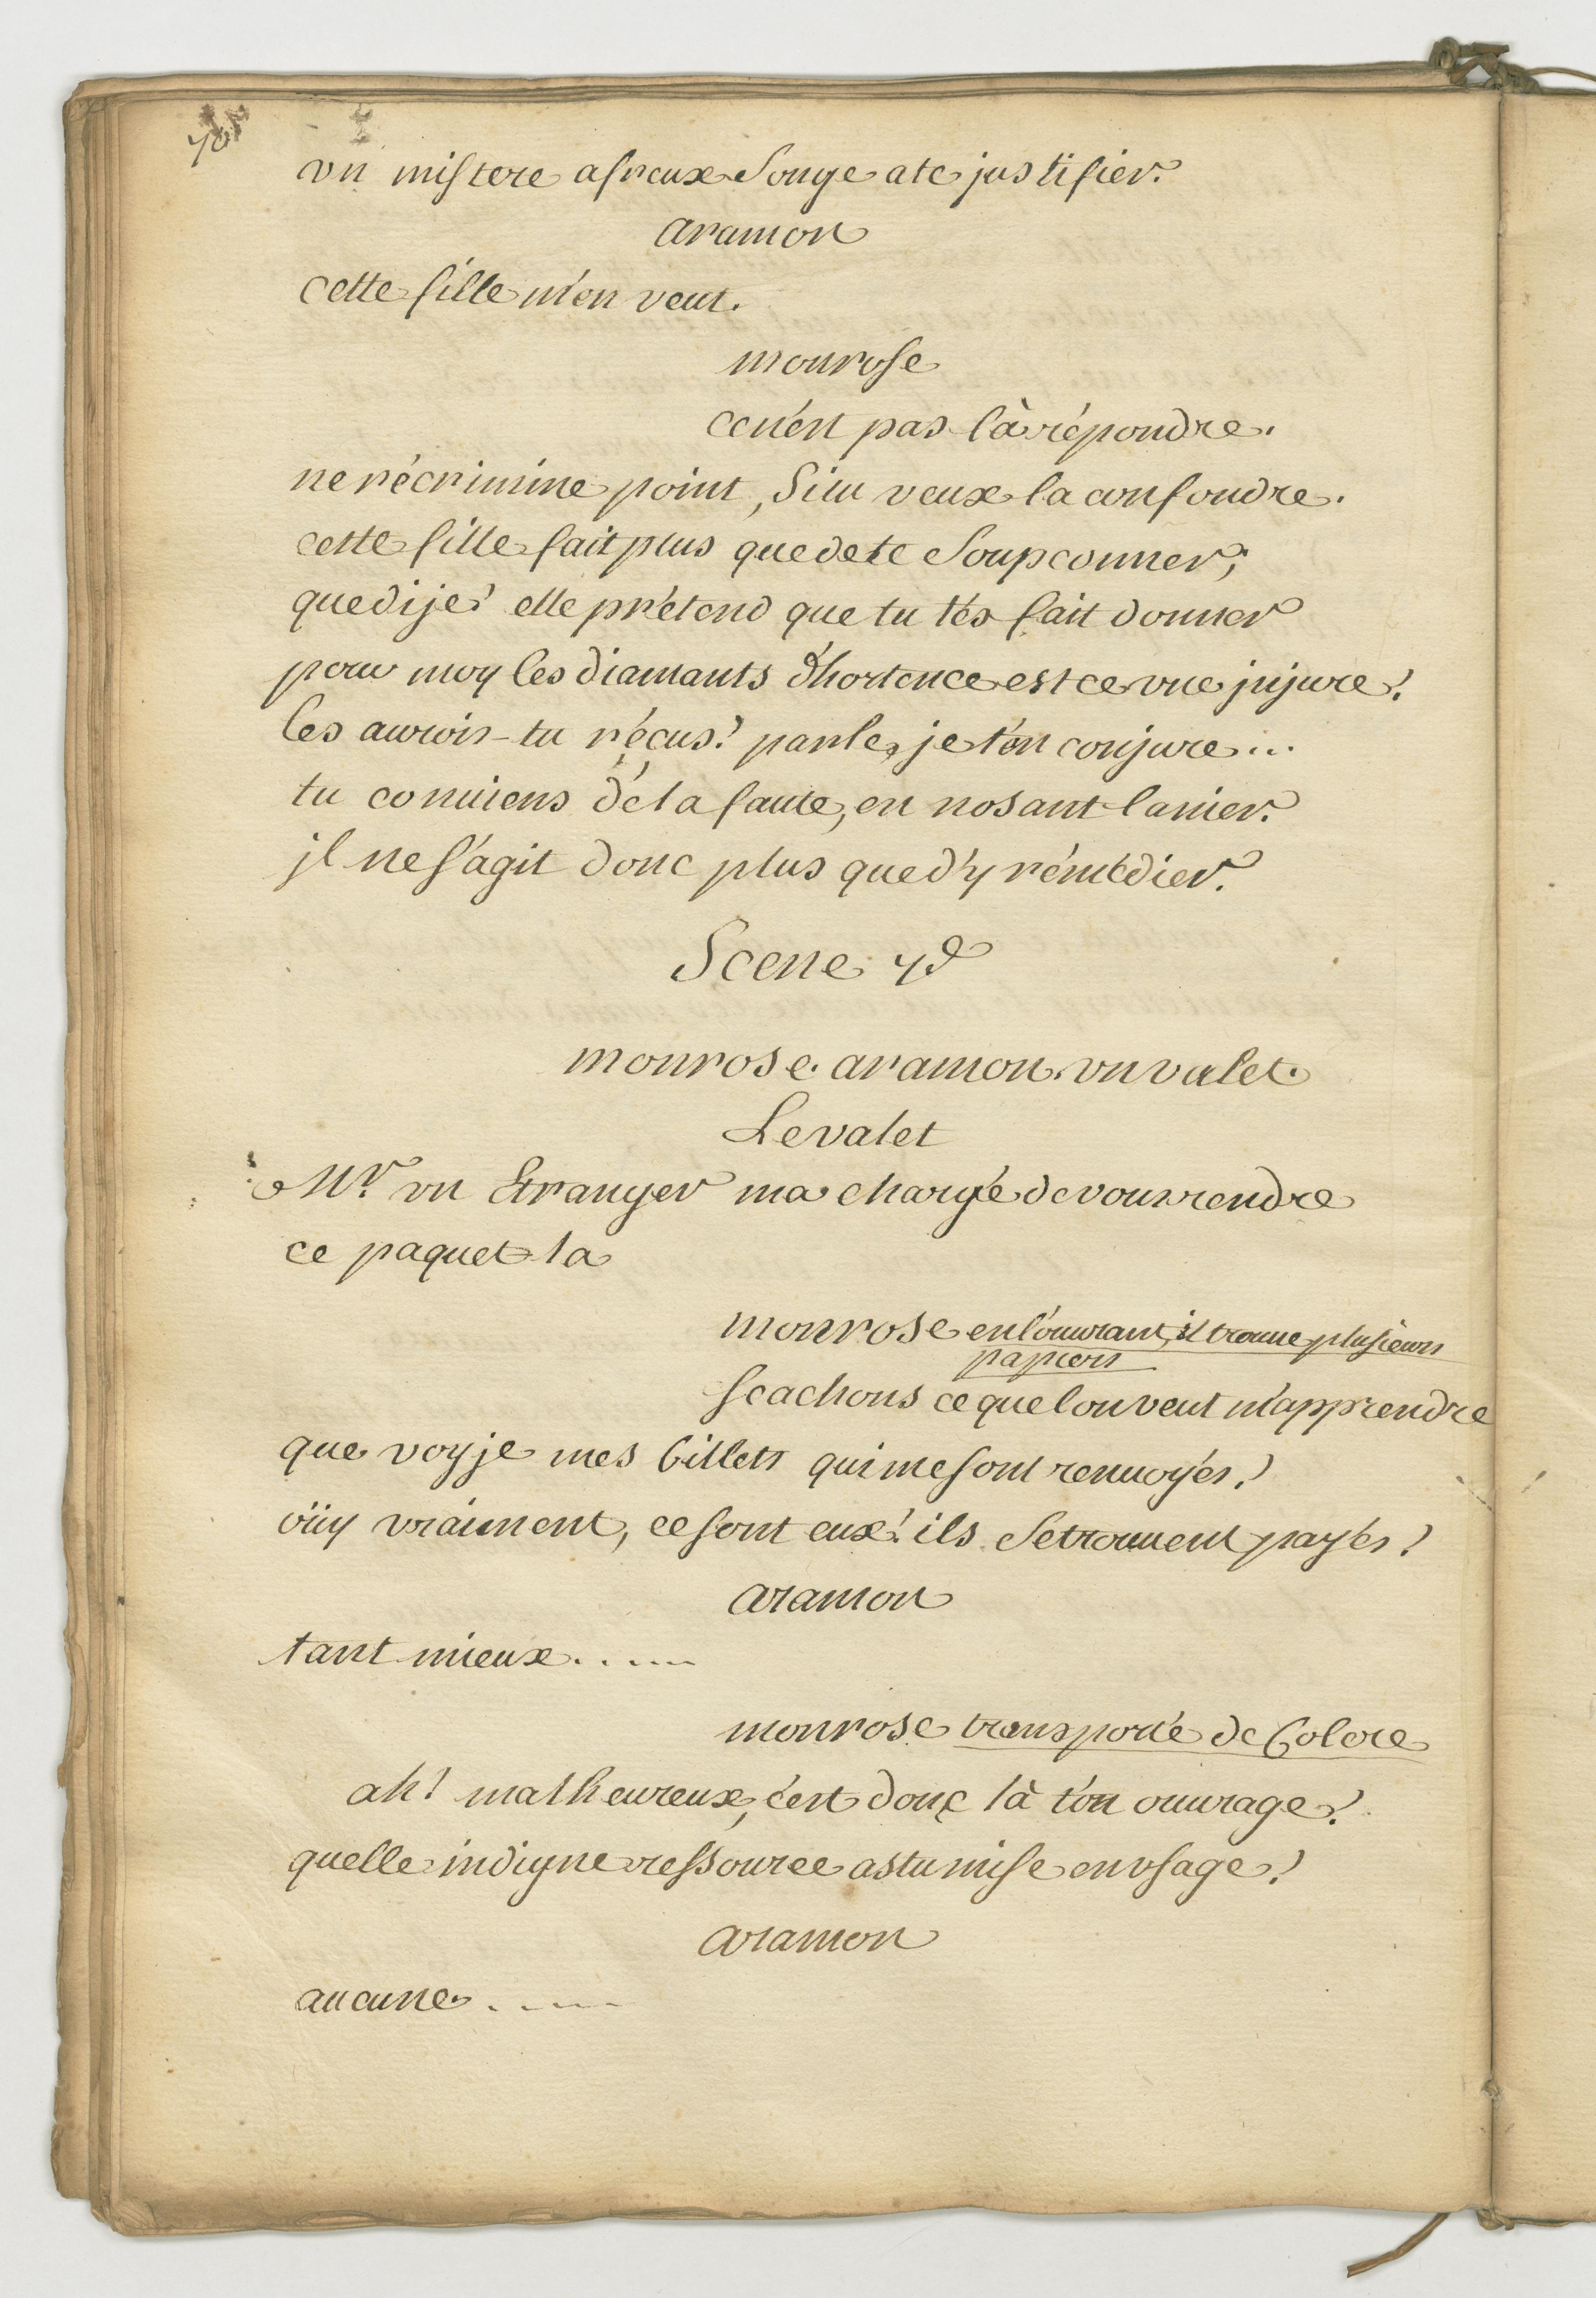 vn mistere afreux Songe ate justifier.
aramon
cette fille m'en veut.
monrose
ce n'est pas là répondre.
ne récrimine point, Si tu veux la confondre.
cette fille fait plus que de te Soupconner;
que dije? elle prétend que tu t'es fait donner
pour moy les diamants d'hortence est ce vne jnjure?
les aurois-tu réçus? parle, je t'en conjure...
tu conuiens dé ta faute, en nosant la nier.
jl ne s'agit donc plus que d'y rémédier.
Scene 7e
monrose. aramon. vn valet.
Le valet
Mr. vn Etranger ma chargé de vous rendre
ce paquet la
monrose en l'ouurant, il trouue plusieurs
papiers
scachons ce que l'on veut m'apprendre
que voy je mes billets qui me sont renuoyés?
oüy vraiment, ce sont eux! ils Se trouuent payés?
aramon
tant mieux......
monrose transporté de Colere
ah! malheureux, c'est donc là t'on ouurage?
quelle indigne ressource as tu mise en vsage?
aramon
aucune......